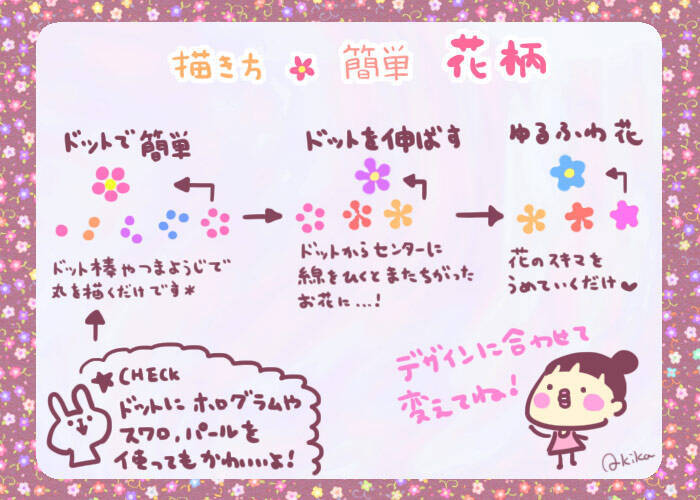 描き方 簡単 花柄
ドットで簡単
ドット棒やつまようじで
丸を描くだけです*
ドットを伸ばす
ドットからセンターに
線をひくとまたちがった
お花に...!
ゆるふわ花
花のスキマを
うめていくだけ♥
★CHECK
ドットにホログラムや
スワロ,パールを
使ってもかわいいよ!
デザインに合わせて
変えてね!